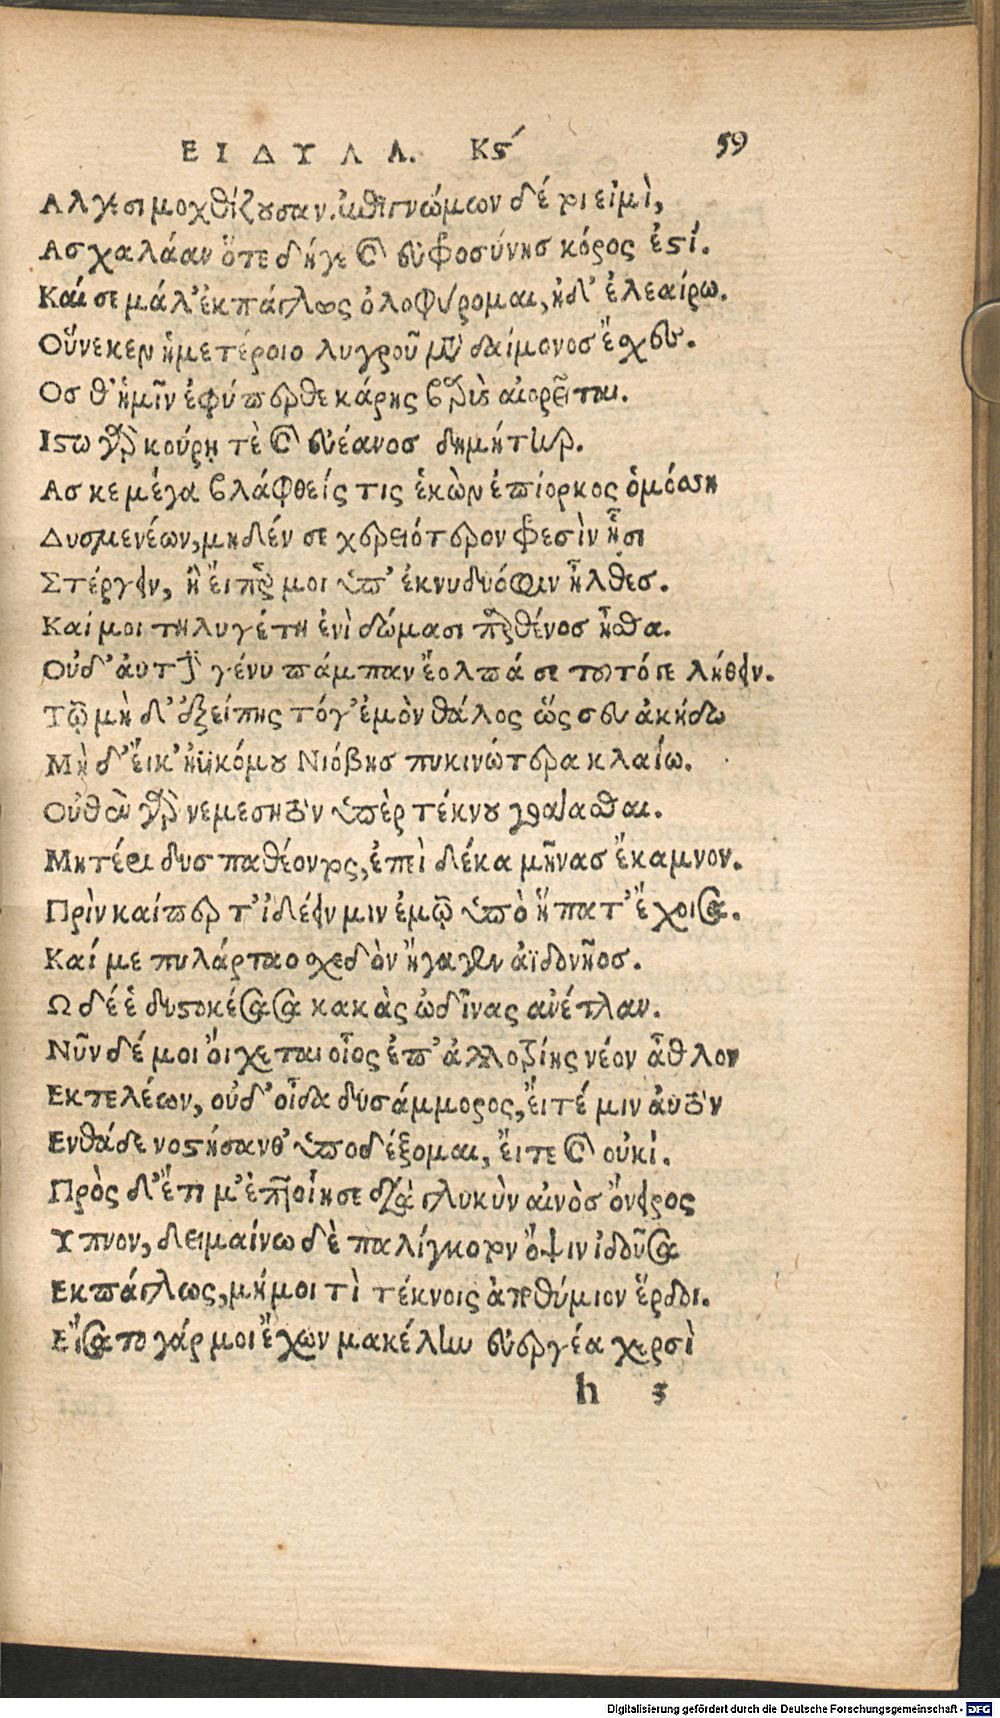 ΕΙΔΥΛΛ. Κϛ´ 59
Αλγεσι μοχθίζουσαν. ἐπιγνώμων δέ τοι εἰμὶ,
Ασχαλάαν ὅτε δήγε καὶ εὐφροσύνης κόρος ἐστί.
Καί σε μάλ' ἐκπάγλως ὀλοφύρομαι, ἠδ' ἐλεαίρω.
Οὕνεκεν ἡμετέροιο λυγροῦ μετὰ δαίμονος ἔχευ.
Οσ θ' ἡμῖν ἐφύπερθε κάρης βαρὺς αἰορεῖται.
Ιστω γὰρ κούρη τὲ καὶ εὐέανος δημήτηρ.
Ασ κε μέγα βλάφθείς τις ἑκὼν ἐπίορκος ὁμόσση
Δυσμενέων, μηδέν σε χερειότερον φρεσὶν ᾗσι
Στέργειν, ἢ εἴπερ μοι ὑπ' ἐκ νηδυόφιν ἦλθες.
Καί μοι τηλυγέτη ἐνὶ δώμασι παρθένος ἦσθα.
Οὐδ' αὐτὴν γένυ πάμπαν ἔολπά σε τοῦτό γε λήθειν.
Τῷ μὴ δ' ἐξείπης τόγ' ἐμὸν θάλος ὥς σευ ἀκήδω
Μὴ δ' εἴκ' ἠϋκόμου Νιόβης πυκινώτερα κλαίω.
Οὐθὲν γὰρ νεμεσητὸν ὑπὲρ τέκνου γοάασθαι.
Μητέρι δυσπαθέοντος, ἐπεὶ δέκα μῆνας ἔκαμνον.
Πρὶν καίπερ τ' ἰδέειν μιν ἐμῷ ὑπὸ ἥπατ' ἔχοισα.
Καί με πυλάρταο σχεδὸν ἤγαγεν ἀϊδονῆος.
Ω δέ ἑ δυστοκέουσα κακὰς ὠδῖνας ἀνέτλαν.
Νῦν δέ μοι οἴχεται οἶος ἐπ' ἀλλοτρίης νέον ἆθλον
Εκτελέων, οὐδ' οἶδα δυσάμμορος, εἴτέ μιν αὖτὸν
Ενθάδε νοστήσανθ' ὑποδέξομαι, εἴτε καὶ οὐκί.
Πρὸς δ' ἔτι μ' ἐπτοίησε διὰ γλυκὺν αἰνὸς ὄνειρος
Υπνον, δειμαίνω δὲ παλίγκοτον ὄψιν ἰδοῦσα
Εκπάγλως, μή μοι τὶ τέκνοις ἀποθύμιον ἔρδοι.
Εἴσατο γάρ μοι ἔχων μακέλην εὐεργέα χερσὶ
h 3
Digitalisierung gefördert durch die Deutsche Forschungsgemeinschaft - DFG